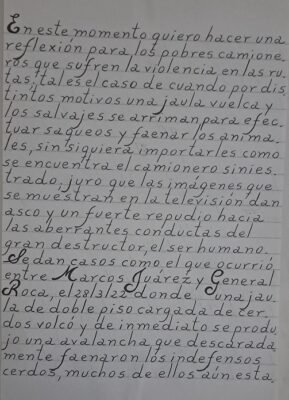 En este momento quiero hacer una
reflexión para los pobres camione-
ros que sufren la violencia en las ru-
tas, tales el caso de cuando por dis
tintos motivos una jaula vuelca y
los salvajes se arriman para efec-
tuar saqueos y faenar los anima-
les, sin siquiera importarles como
se encuentra el camionero sinies-
trado, juro que las imágenes que
se muestran en la televisión dan
asco y un fuerte repudio hacia
las aberrantes conductas del
gran destructor, el ser humano.
Se dan casos como el que ocurrió
entre Marcos Juárez y General
Roca, el 28/3/22 donde una jau-
la de doble piso cargada de cer-
dos volcó y de inmediato se produ-
jo una avalancha que descarada
mente faenaron los indefensos
cerdos, muchos de ellos aún esta-